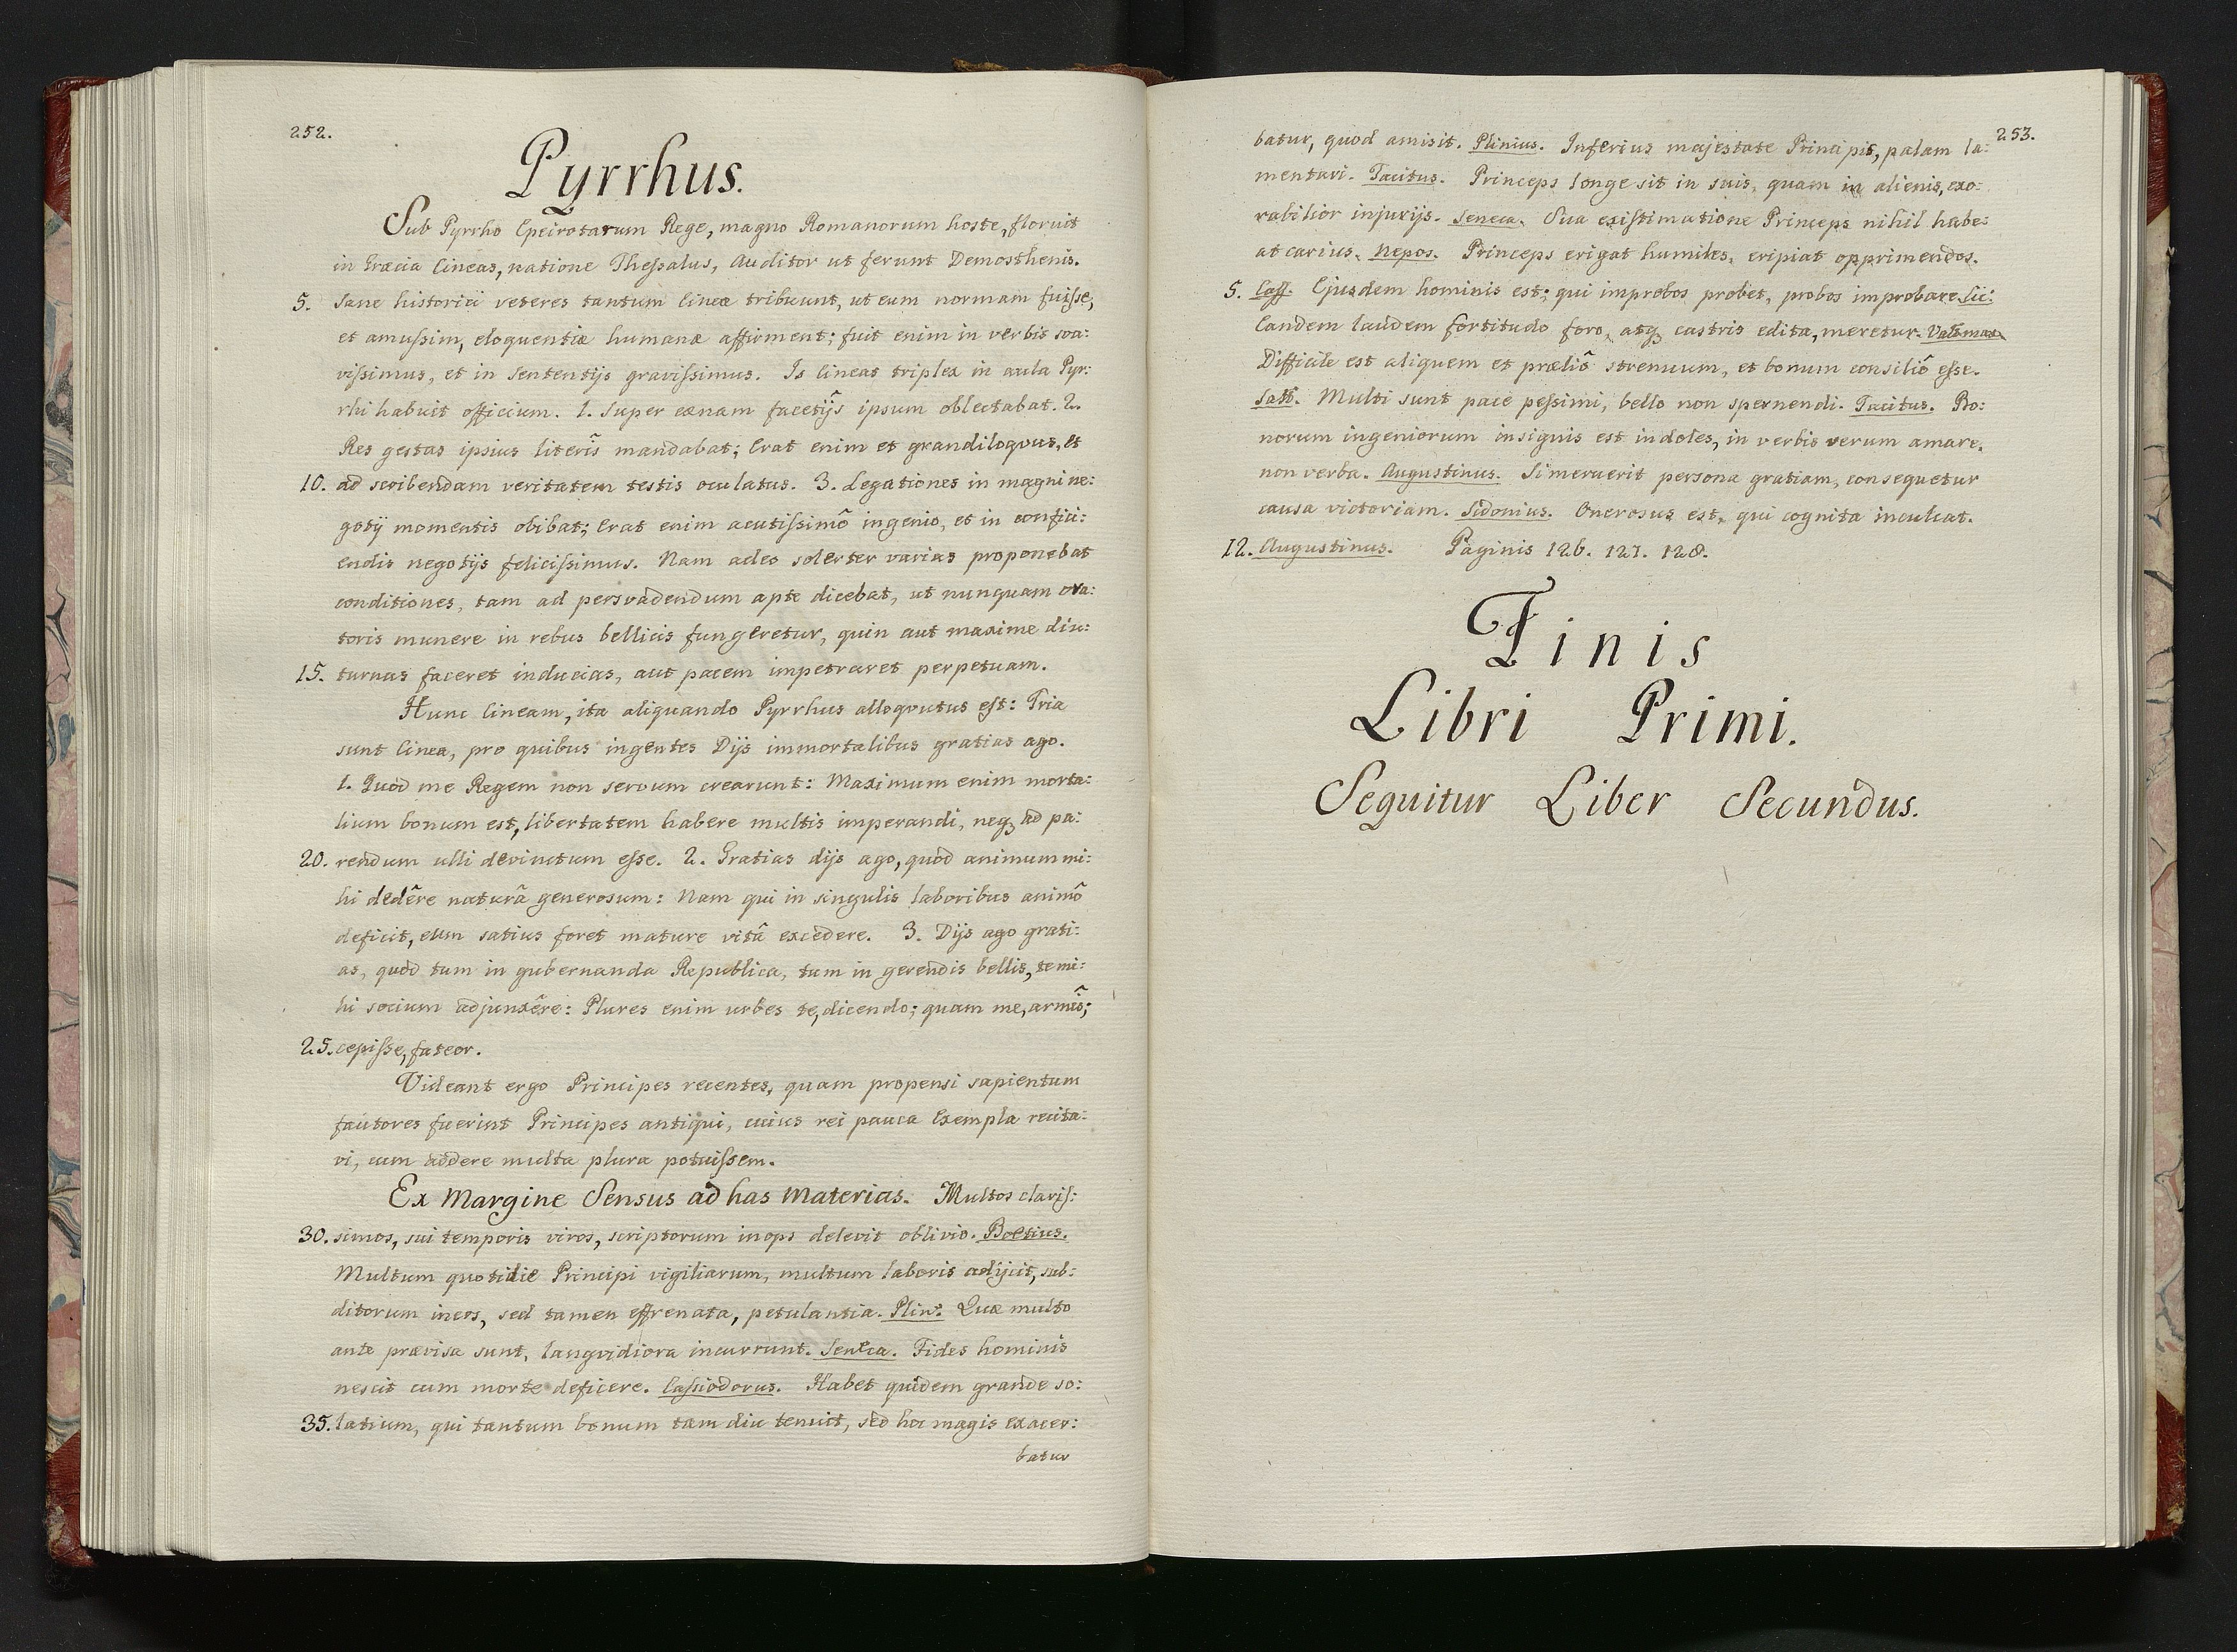 252.
Pyrrhus.
Sub Pyrrho Epeirotarum Rege, magno Romanorum hoste, floruit
in Græcia Cineas, natione Theſsalus, Auditor ut ferunt Demosthenis.
5. Sane historici veteres tantum Cineæ tribuunt, ut eum normam fuiſse,
et amuſsim, eloquentiæ humanæ affirment; fuit enim in verbis sva:
viſsimus, et in Sententijs graviſsimus. Is Cineas triplex in aula Pyr:
rhi habuit officium. 1. Super cænam facetijs̑ ipsum oblectabat. 2.
Res gestas ipsius literis̑ mandabat; Erat enim et grandiloqvus, et
10. ad scribendam veritatem testis oculatus. 3. Legationes in magni ne:
gotij momentis obibat; Erat enim acutiſsimô ingenio, et in confici:
endis negotijs feliciſsimus. Nam adeo solerter varias proponebat
conditiones, tam ad persvadendum apte dicebat, ut nunquam ora:
toris munere in rebus bellicis fungeretur, quin aut maxime diu:
15. turnas faceret inducias, aut pacem impetraret perpetuam.
Hunc Cineam, ita aliquando Pyrrhus alloqvutus eſt: Tria
sunt Cinea, pro quibus ingentes Dijs immortalibus gratias ago.
1. Quòd me Regem non servum crearunt: Maximum enim morta:
lium bonum est, libertatem habere multis imperandi, neq̨ ad pa:
20. rendum ulli devinctum eſse. 2. Gratias dijs ago, quòd animum mi:
hi dedêre naturâ generosum: Nam qui in singulis laboribus animô
deficit, eum satius foret mature vitâ excedere. 3. Dijs ago grati:
as, quòd tum in gubernanda Republica, tum in gerendis bellis, te mi:
hi socium adjunxêre: Plures enim urbes te, dicendo; quam me, armis̑;
25. cepiſse, fateor.
Videant ergo Principes recentes, quam propensi sapientum
fautores fuerint Principes antiqui, cuius rei pauca Exempla recita:
vi, cum addere multa plura potuiſsem.
Ex Margine Sensus ad has Materias. Multos clariſ:
30. simos, sui temporis viros, scriptorum inops delevit oblivio. Boëtius.
Multum quotidie Principi vigiliarum, multum laboris adijcit, sub:
ditorum iners, sed tamen effrenata, petulantia. Plin: Quæ multo
ante prævisa sunt, langvidiora incurrunt. Seneca. Fides hominis
nescit cum morte deficere. Caſsiodorus. Habet quidem grande so:
35. latium, qui tantum bonum tam diu tenuit, sed hoc magis exacer:
batur
253.
batur, quod amisit. Plinius. Inferius majestate Principis, palam la:
mentari. Tacitus. Princeps longe sit in suis, quam in alienis, exo:
rabilior injurijs. Seneca. Sua exiſtimatione Princeps nihil habe:
at carius. Nepos. Princeps erigat humiles, eripiat opprimendos.
5. Caſſ. Ejusdem hominis est; qui improbos probet, probos improbare. Cic:
Eandem laudem fortitudo foro, atq̨ castris edita, meretur. Val: max:
Difficile est aliquem et præliô strenuum, et bonum consiliô eſse.
Sall. Multi sunt pace peſsimi, bello non spernendi. Tacitus. Bo:
norum ingeniorum insignis est indoles, in verbis verum amare,
non verba. Augustinus. Si meruerit persona gratiam, consequetur
causa victoriam. Sidonius. Onerosus est, qui cognita inculcat.
12. Augustinus. Paginis 126. 127. 128.
Finis
Libri Primi.
Sequitur Liber Secundus.